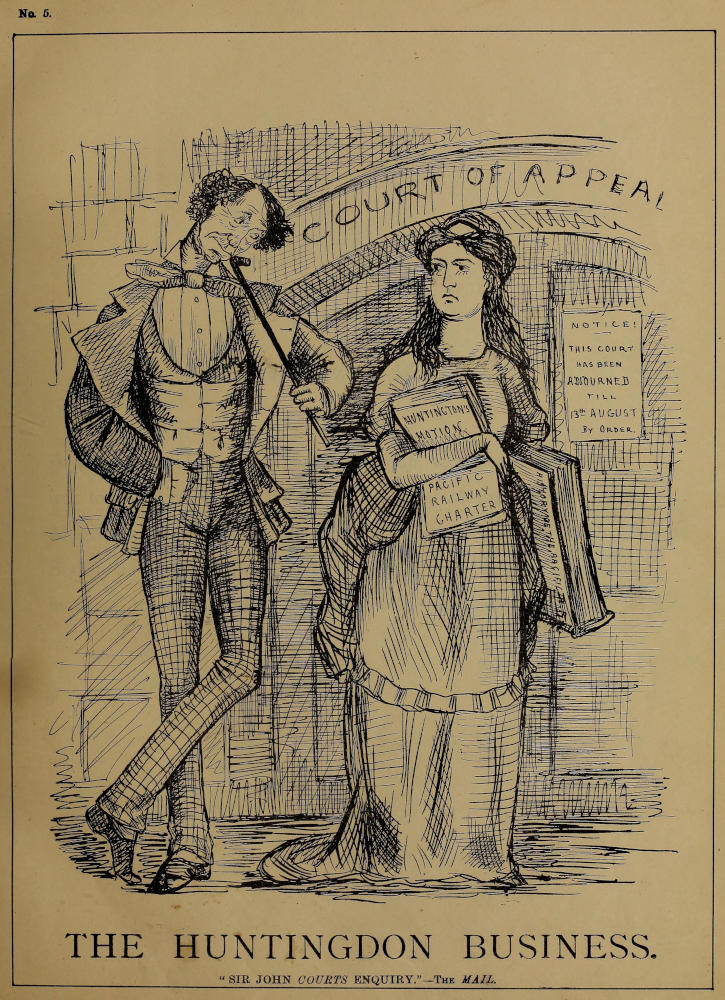 No. 5.
COURT OF APPEAL
NOTICE!
THIS COURT
HAS BEEN
ADJOURNED
TILL
13th AUGUST
BY ORDER.
HUNTINGTON'S
MOTION.
PACIFIC
RAILWAY
CHARTER
THE HUNTINGDON BUSINESS.
"SIR JOHN COURTS ENQUIRY."—THE MAIL.